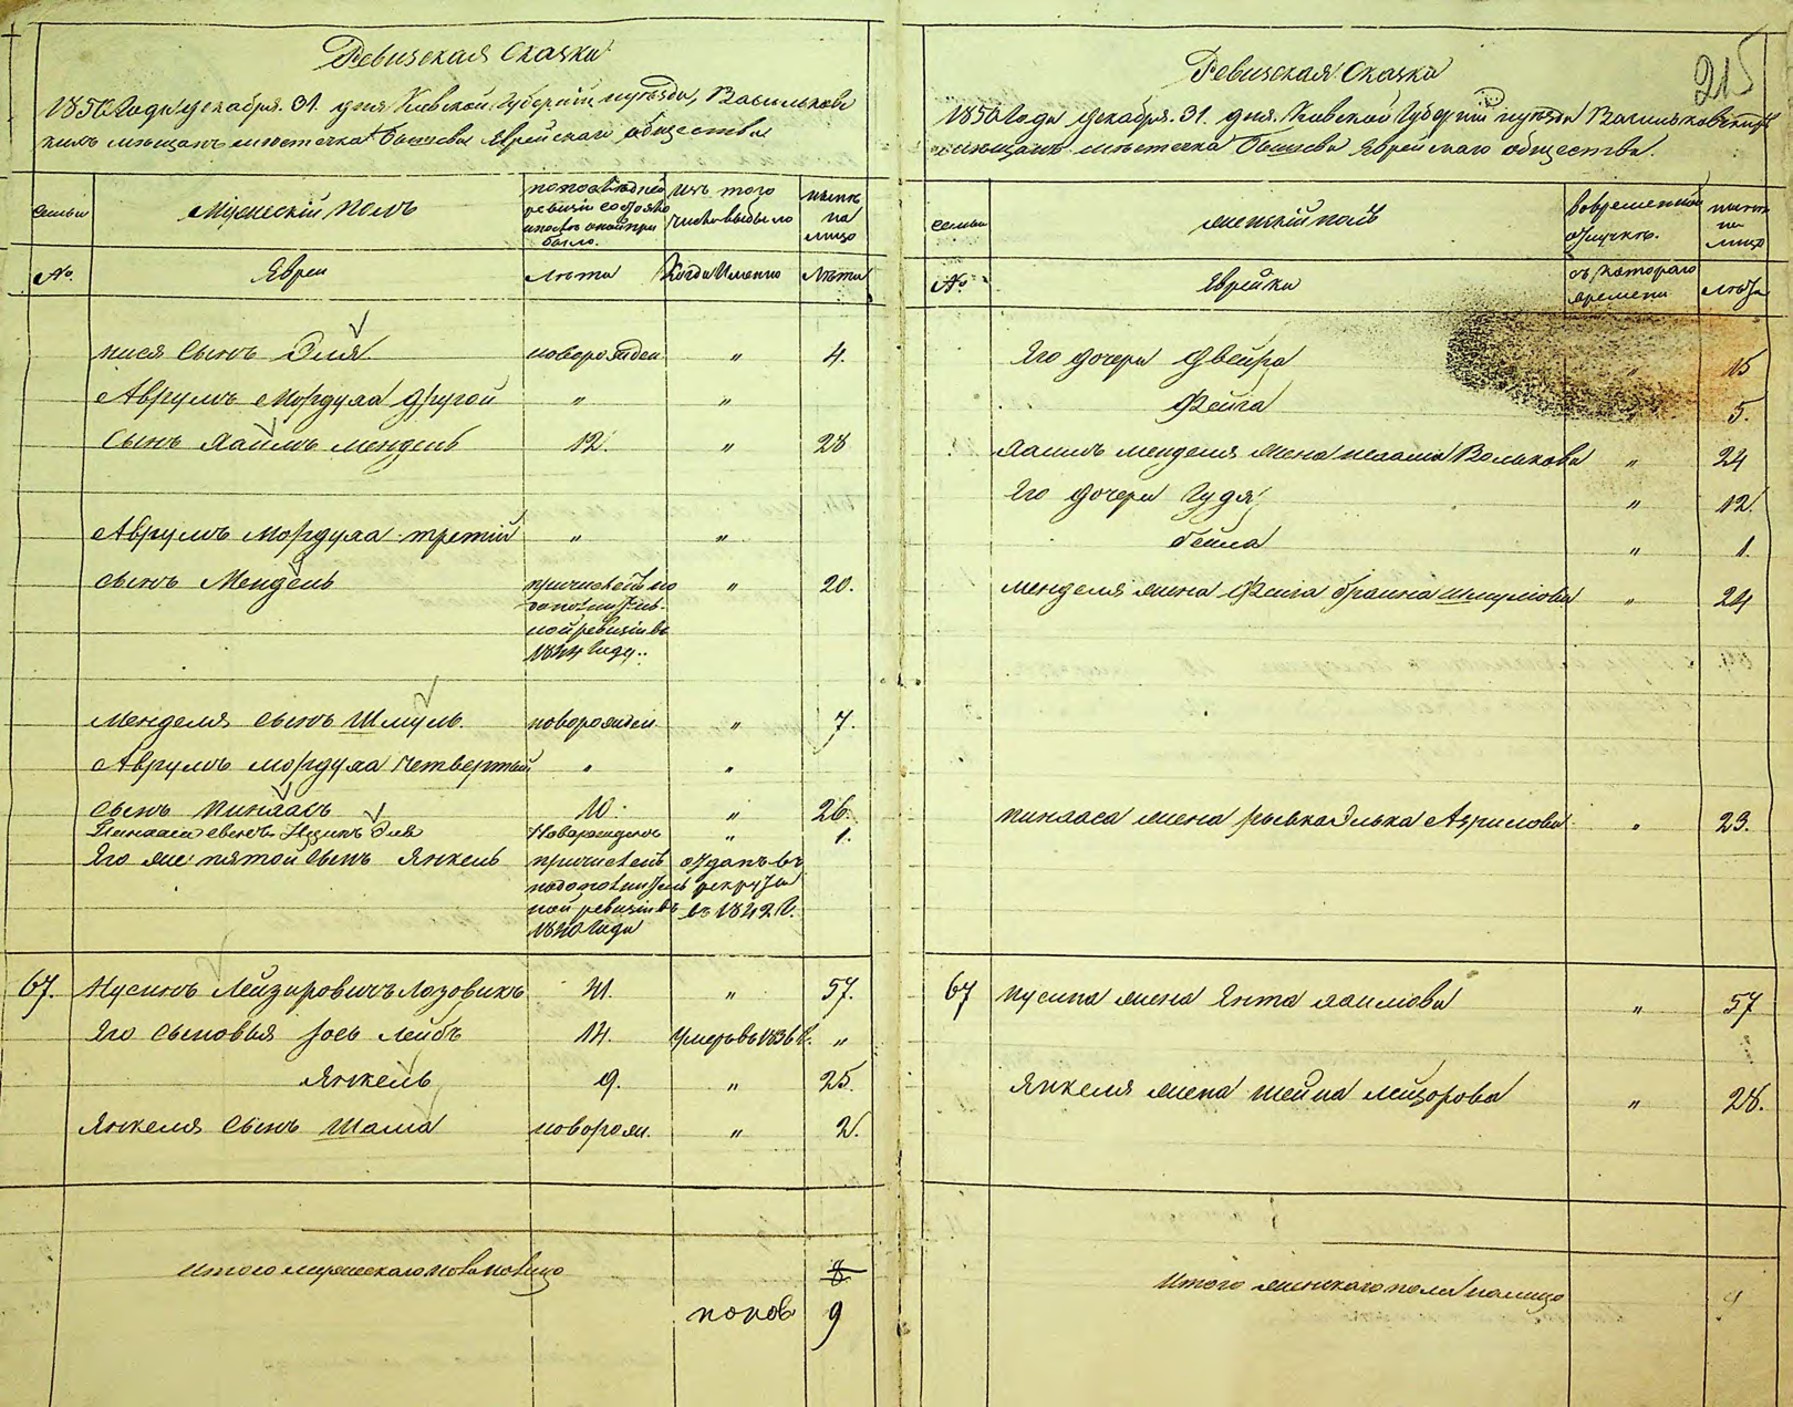 Ревизская Сказка
1850 Года декабря 31 дня Киевской Губернии и уезда, Васильков
скихъ мещанъ местечка Бышева Еврейскаго общества
Семьи
Мужескій полъ
по последней
ревизіи состояло
и после оной при
было.
Изъ того
числа выбыло
ныне
на
лицо
№.
Евреи
Лета
Когда Именно
Лета
нися Сынъ Эля новорожден " 4.
Аврумъ Мордуха другой " "
Сынъ Хаимъ Мендель 12. " 28
Аврумъ Мордуха третій " "
сынъ Мендель причисленъ по " 20.
дополнитель-
ной ревизіи въ
1844 Году.
Менделя сынъ Шмуль. новорожден " 7.
Аврумъ Мордуха четвертый " "
сынъ Пинхасъ 10. " 26.
Пинхаса сынъ Нусинъ Эля Новорожденъ " 1.
Его же пятой сынъ Янкель причисленъ отданъ въ
по дополнитель рекруты
ной ревизіи въ въ 1842 г.
1840 Года
67. Нусинъ Лейзировичъ Лозовикъ 41. " 57.
Его сыновья Іось Лейбъ 14. Умеръ въ 1836 г. "
Янкель 9. " 25.
Янкеля Сынъ Шама новорож. " 2.
Итого мужескаго пола на лицо 8
попов 9
215
Ревизская Сказка
1850 Года декабря 31. дня. Киевской Губерніи и уезда Васильковскихъ
мещанъ местечка Бышева Еврейскаго общества.
семьи
женскій полъ
во временной
отлучке.
ныне
на
лицо
№
Еврейки
съ котораго
времени
лета
Его дочери Двейра " 15
Фейга " 5.
Хаимъ Менделя жена Волькова " 24
Его дочери Гудя " 12.
бейла " 1.
Менделя жена Фейга браина Шмулова " 24
Пинхаса жена рывка Элька " 23.
67 Нусина жена Ента Хаимова " 57
Янкеля жена Шейна Лейзорова " 28.
Итого женскаго пола на лицо 9